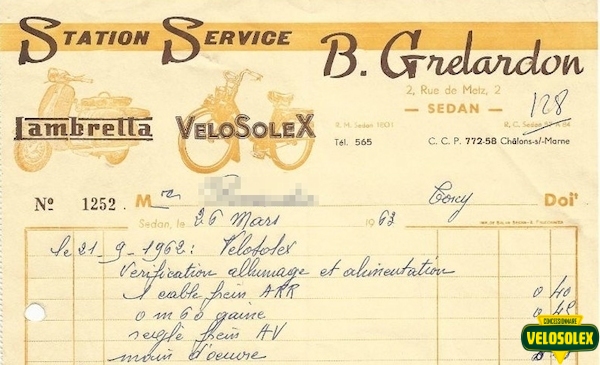 STATION SERVICE
B. Grelardon
2, Rue de Metz, 2
— SEDAN —
128
Lambretta
VELOSOLEX
R. M. Sedan 1801
R. C. Sedan 57 A 84
Tél. 565
C. C. P. 772-58 Châlons-s/-Marne
Nº 1252 M
Torcy
Doi'
Sedan, le 26 Mars 1962
le 21-9-1962: Velosolex
Verification allumage et alimentation
1 cable frein ARR 0 40
0 m 60 gaine 0 45
reglé frein AV
main d'oeuvre
CONCESSIONNAIRE
VELOSOLEX